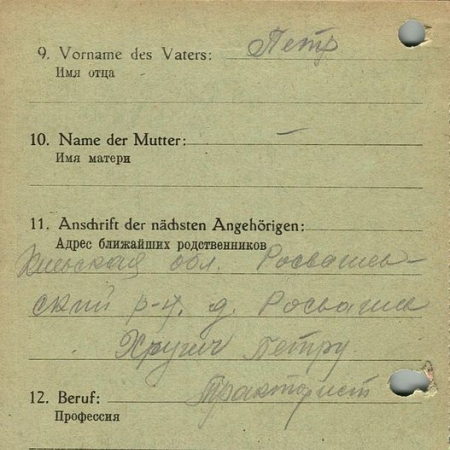 9. Vorname des Vaters: Петр
Имя отца
10. Name der Mutter: —
Имя матери
11. Anschrift der nächsten Angehörigen:
Адрес ближайших родственников
обл.
ский р-н, д.
Петру
12. Beruf: Тракторист
Профессия